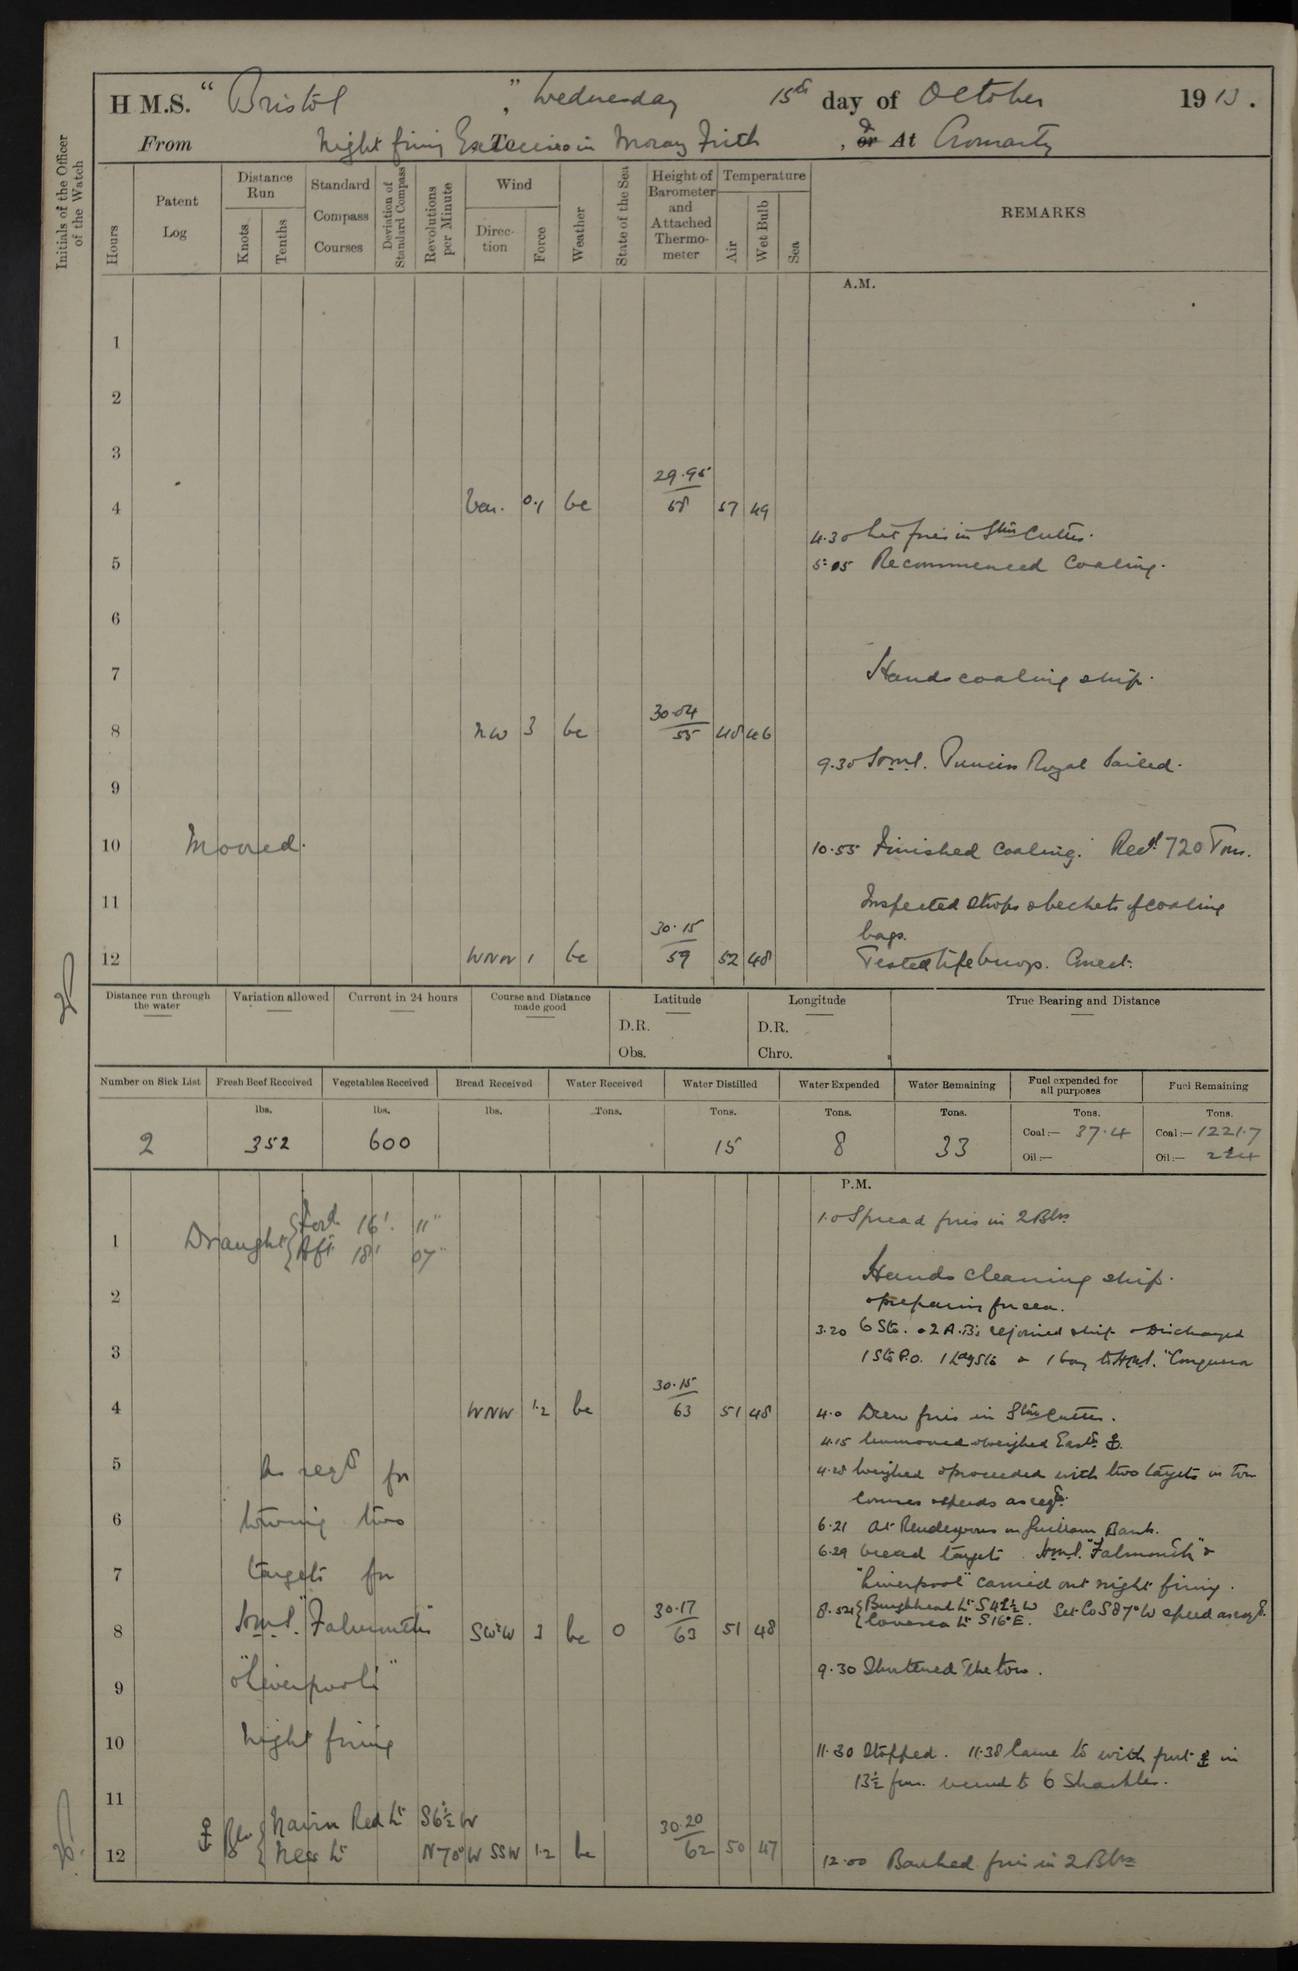 H.M.S. "Bristol", Wednesday 15th day of October 1913.
From Night firing Exercise in Moray Firth, & or At Cromarty
Initials of the Officer of the Watch
Hours
Patent Log
Distance Run
Knots
Tenths
Standard Compass Courses
Deviation of Standard Compass
Revolutions per Minute
Wind
Direction
Force
Weather
State of the Sea
Height of Barometer and Attached Thermometer
Temperature
Air
Wet Bulb
Sea
REMARKS
A.M.
1
2
3
4 Var. 0.1 bc 29.95 58 57 49
4.30 Lit fires in Stm Cutter.
5 5.05 Recommenced Coaling.
6
7 Hands coaling ship.
8 NW 3 bc 30.04 55 48 46
9.30 H.M.S. Princess Royal Sailed.
9
10 Moored. 10.55 Finished Coaling. Recd 720 Tons.
11 Inspected strops & beckets of coaling
bags.
12 WNW 1 bc 30.15 59 52 48 Tested lifebuoys. Correct.
Distance run through the water
Variation allowed
Current in 24 hours
Course and Distance made good
Latitude
D.R.
Obs.
Longitude
D.R.
Chro.
True Bearing and Distance
Number on Sick List
Fresh Beef Received
Vegetables Received
Bread Received
Water Received
Water Distilled
Water Expended
Water Remaining
Fuel expended for all purposes
Fuel Remaining
lbs. lbs. lbs. Tons. Tons. Tons. Tons. Tons. Tons.
2 352 600 15 8 33 Coal:— 37.4 Coal:— 1221.7
Oil:— Oil:— 224
P.M.
1.0 Spread fires in 2 Blrs
1 Draught { Ford 16' 11"
Aft 18' 07"
Hands cleaning ship.
2 & preparing for sea.
3.20 6 Sto. & 2 A.B's rejoined ship & Discharged
3 1 Sto P.O. 1 Ldg Sto & 1 boy to H.M.S. "Conqueror
4 WNW 1.2 bc 30.15 63 51 48 4.0 Drew fires in Stm Cutter.
4.15 Unmoored & weighed East ⚓.
5 As reqd for 4.28 Weighed & proceeded with two targets in tow
Courses & speeds as reqd.
6 towing two 6.21 At Rendezvous on Guillam Bank.
6.29 Veered targets. H.M.S. "Falmouth" &
7 targets for "Liverpool" carried out night firing.
8.52 { Burghead Lt S41½W Set Co S87°W speed as reqd.
Covesea Lt S16°E.
8 H.M.S. "Falmouth" SW'W 3 bc 0 30.17 63 51 48
9.30 Shortened the tow.
9 "Liverpool"
10 Night firing 11.30 Stopped. 11.38 Came to with port ⚓ in
13½ fms. veered to 6 Shackles.
11
⚓ Bgs { Nairn Red Lt S6½W
12 Ness Lt N70°W SSW 1.2 bc 30.20 62 50 47
12.00 Banked fires in 2 Blrs